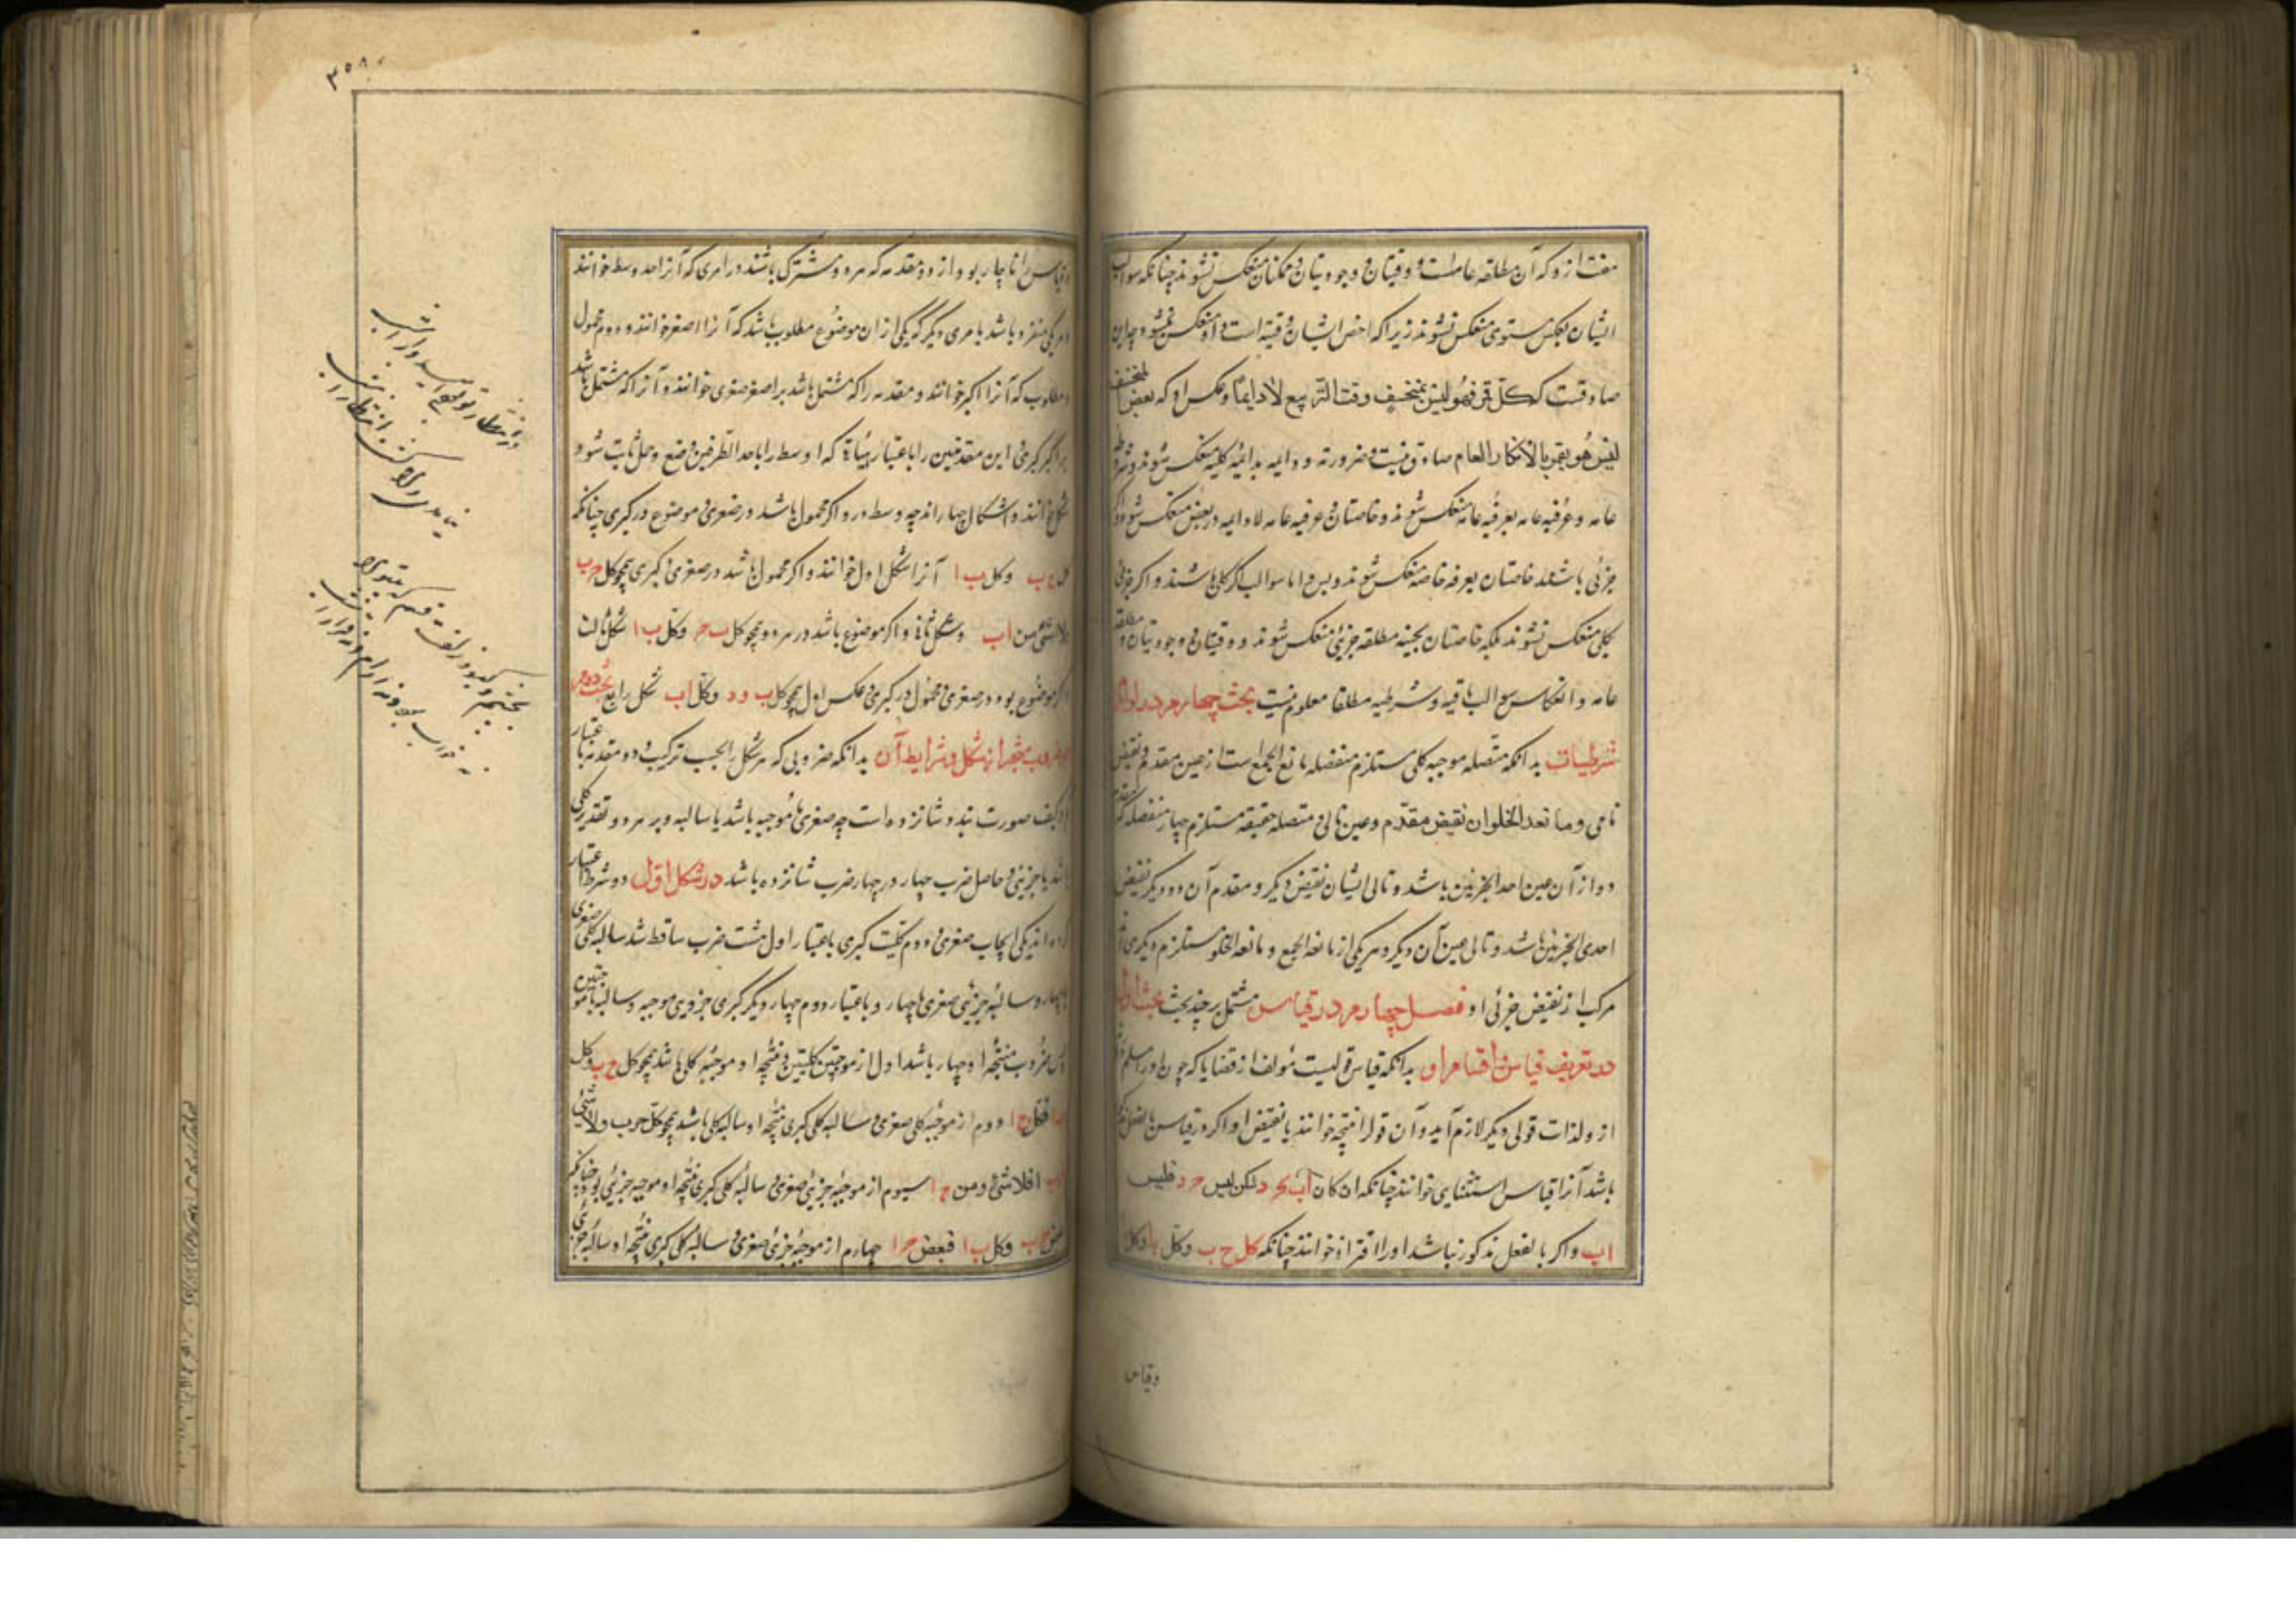 هفت ازو که آن مطلقه عامه است و وقتیتان و وجودیتان و ممکنتان منعکس نشوند چنانکه سوالب
ایشان بعکس مستوی منعکس نشوند زیرا که اخص ایشان وقتیه است و او منعکس نمیشود چه این
صادقست که کل قمر فهو لیس بمنخسف وقت التربیع لا دایما و عکس او که بعض المنخسف
لیس هو بقمر بالامکان العام صادق نیست و ضروریه و دائمه بدائمه کلیه منعکس شوند و مشروطه
عامه و عرفیه عامه بعرفیه عامه منعکس شوند و خاصتان و عرفیه عامه لادایمه در بعض منعکس شود و اگر
جزئی باشند خاصتان بعرفیه خاصه منعکس شوند و بس و اما سوالب اگر کلی باشند و اگر جزئی
بکلی منعکس نشوند بلکه خاصتان بحینیه مطلقه جزئی منعکس شوند و وقتیتان و وجودیتان و مطلقه
عامه و انعکاس سوالب باقیه و شرطیه مطلقا معلوم نیست بحث چهارم در لوازم
شرطیات بدانکه متصله موجبه کلی مستلزم منفصله مانع الجمع است از عین مقدم و نقیض
تالی و مانعة الخلو از نقیض مقدم و عین تالی و متصله حقیقیه مستلزم چهار منفصله که مقدم
دو از آن عین احد الجزئین باشد و تالی ایشان نقیض دیگر و مقدم آن دو دیگر نقیض
احدی الجزئین باشد و تالی عین آن دیگر و هر یکی از مانعة الجمع و مانعة الخلو مستلزم دیگری
مرکب از نقیض جزئی او فصل چهارم در قیاس مشتمل بر چند بحث بحث اول
در تعریف قیاس و اقسام آن بدانکه قیاس قولیست مؤلف از قضایا که چون آورا مسلم
از و لذات قولی دیگر لازم آید و آن قول را نتیجه خوانند یا نقیض او اگر در قیاس بالفعل
باشد آنرا قیاس استثنایی خوانند چنانکه ان کان اب فجد لکن لیس جد فلیس
اب و اگر بالفعل مذکور نباشد او را اقترانی خوانند چنانکه کل ج ب و کل ب ا فکل
وقیاس
۳۵۸
وقیاس را ناچار بود از دو مقدمه که هر دو مشترک باشند در امری که آنرا حد وسط خوانند
و هر یکی منفرد باشد بامری دیگر که یکی از ان موضوع مطلوب باشد که آنرا اصغر خوانند و دوم محمول
مطلوب که آنرا اکبر خوانند و مقدمه را که مشتمل باشد بر اصغر صغری خوانند و آنرا که مشتمل باشد
بر اکبر کبری و این مقدمتین را باعتبار هیأتی که اوسط را باحد الطرفین وضع و حمل ثابت شود
شکل خوانند و اشکال چهاراند چه وسط در او اگر محمول باشد در صغری و موضوع در کبری چنانکه
کل ج ب و کل ب ا آنرا شکل اول خوانند و اگر محمول باشد در صغری و کبری همچو کل ج ب
ولا شئ من اب و شکل ثانی و اگر موضوع باشد در هر دو همچو کل ب ج و کل ب ا شکل ثالث
اگر موضوع بود در صغری و محمول در کبری و عکس اول همچو کل ب ود وکل اب شکل رابع بحث دوم
در ضروب منتجه از هر شکل و شرایط آن بدانکه ضروبی که هر شکل را بحسب ترکیب دو مقدمه باعتبار
کم و کیف صورت بندد شانزده است چه صغری یا موجبه باشد یا سالبه و بر هر دو تقدیر کلی
باشد یا جزیی و حاصل ضرب چهار در چهار ضرب شانزده باشد در شکل اول دو شرط اعتبار
کرده اند یکی ایجاب صغری و دوم کلیت کبری باعتبار اول هشت ضرب ساقط شد سالبه کلی صغری
با چهار و سالبه جزیی صغری با چهار و باعتبار دوم چهار دیگر کبری جزوی موجبه و سالبه با موجبتین
پس ضروب منتجه او چهار باشد اول از موجبتین کلیتین و نتیجه او موجبه کلی باشد همچو کل ج ب وکل
ب ا فکل ج ا دوم از موجبه کلی صغری و سالبه کلی کبری و نتیجه او سالبه کلی باشد همچو کل ج ب ولا شئ
من ب ا فلا شئ من ج ا سیوم از موجبه جزیی صغری و سالبه کلی کبری و نتیجه او موجبه جزیی بود چنانکه
بعض ج ب وکل ب ا فبعض ج ا چهارم از موجبه جزئی صغری و سالبه کلی کبری و نتیجه او سالبه جزئی